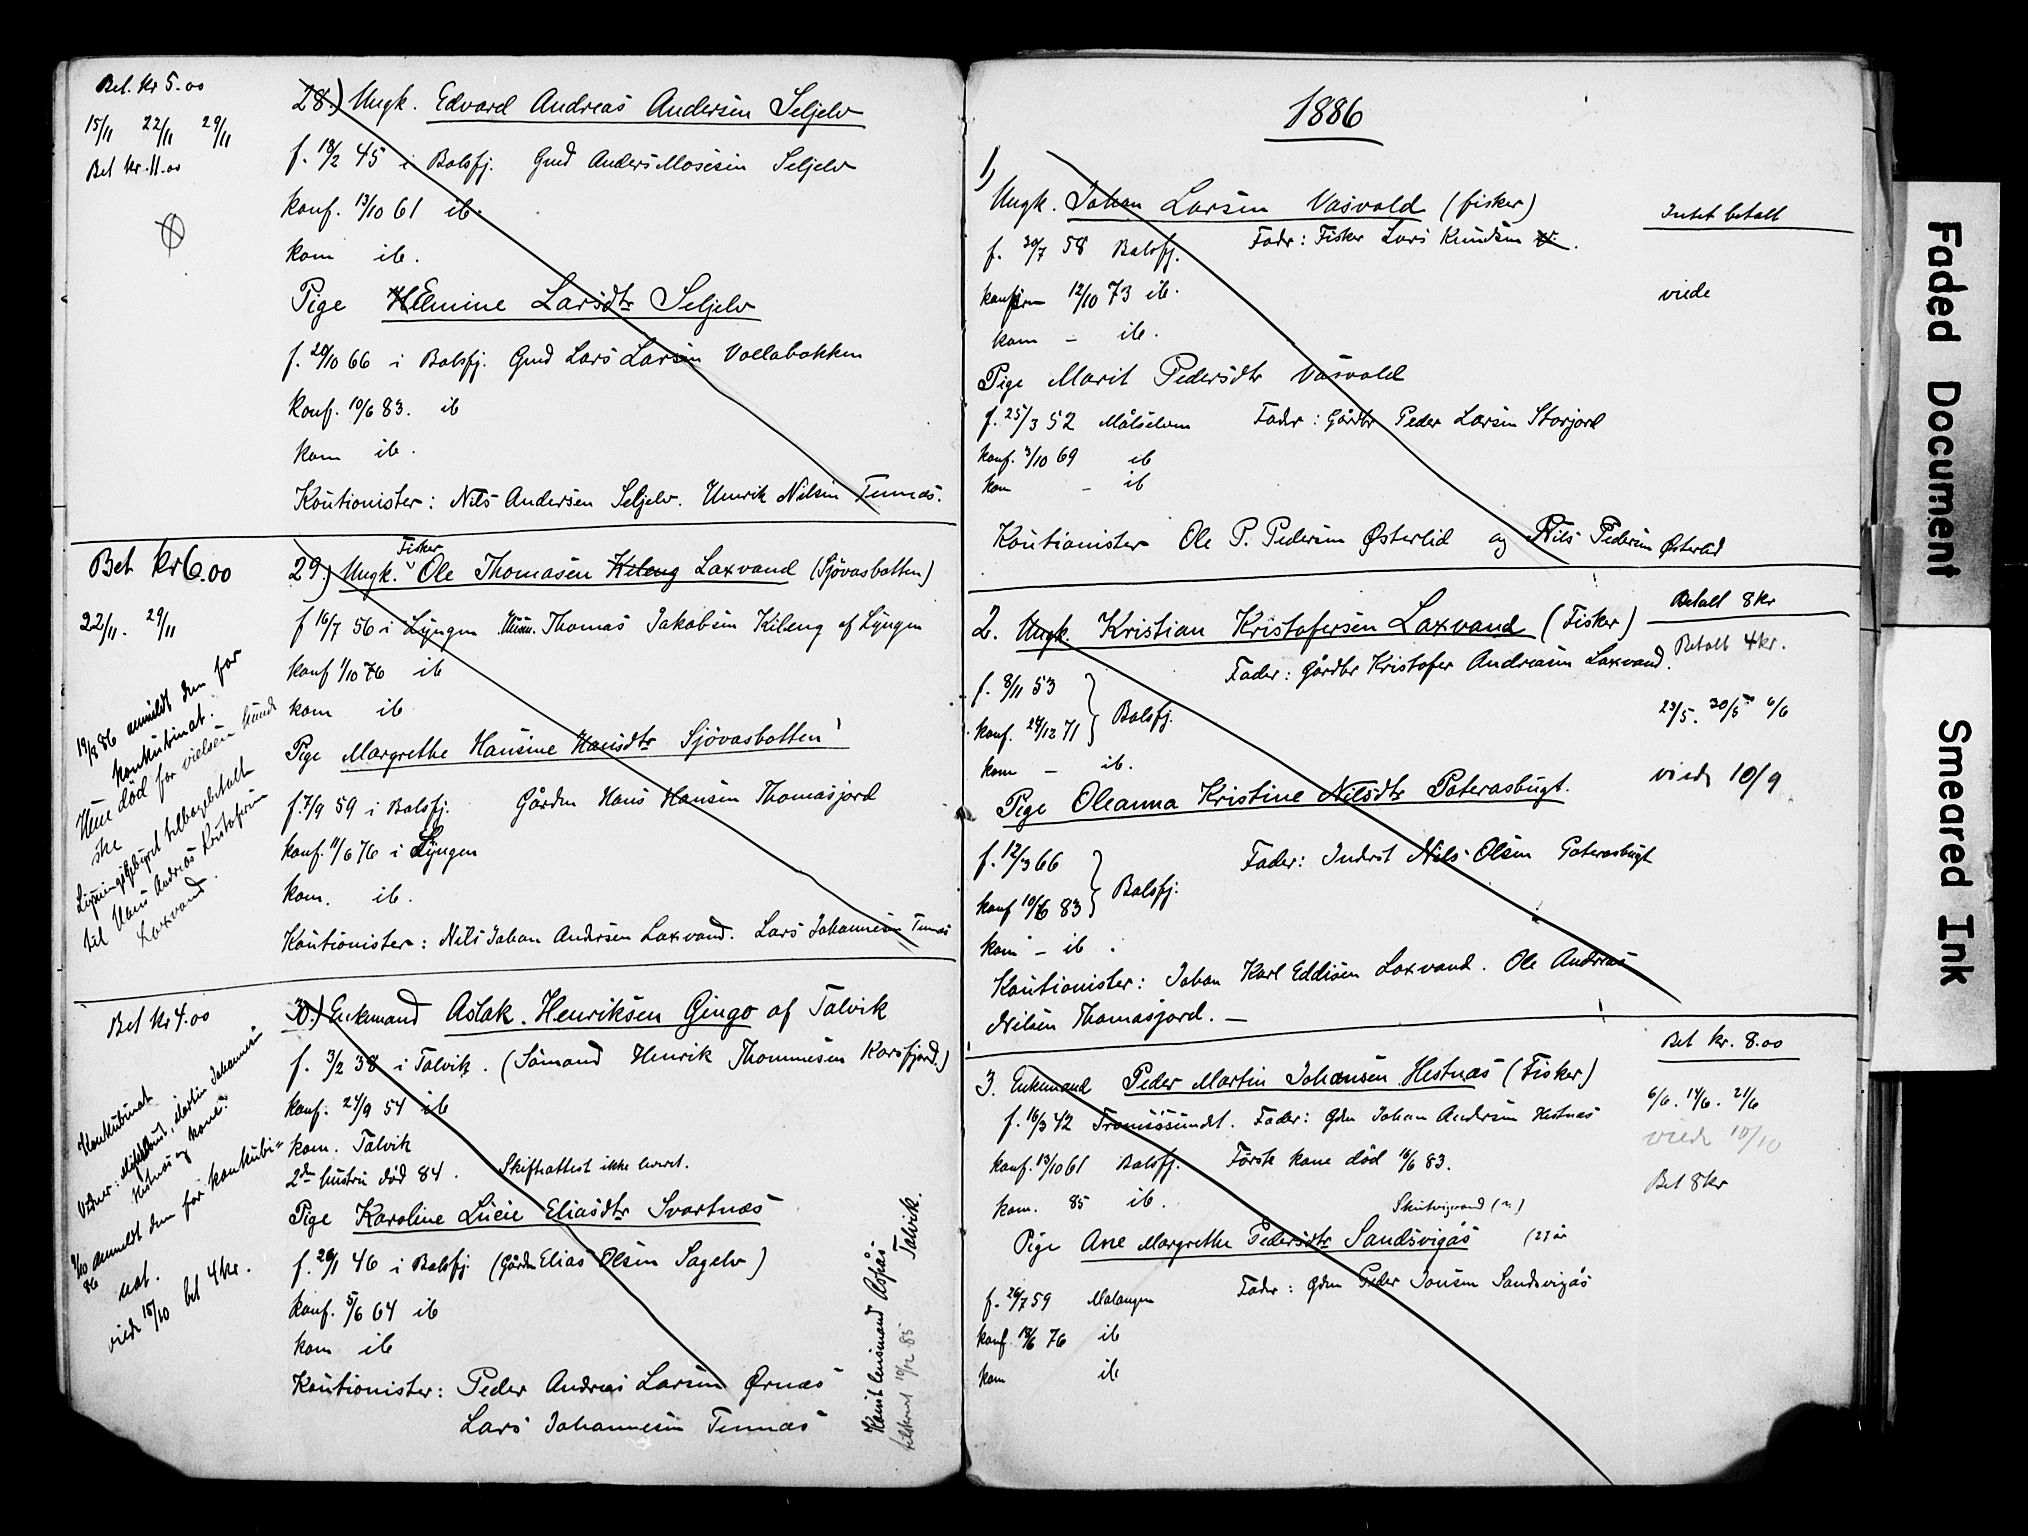 Bet. Kr 5.00
15/11 22/11 29/11
Bet Kr. 11.00
28.) Ungk. Edvard Andreas Andersen Seljelv
f. 18/2 45 i Balsfj. Gmd Anders Mosesen Seljelv
konf. 13/10 61 ib.
kom ib.
Pige Elmine Larsdtr Seljelv
f. 20/10 66 i Balsfj. Gmd Lars Larsen Vollabakken
konf. 10/6 83. ib
kom ib.
Kautionister: Nils Andersen Seljelv. Henrik Nilsen Tennæs.
Bet Kr 6.00
22/11. 29/11
19/8 86 anmeldt dem for
konkubinat.
Hun død før vielsen kunde
ske
Lysningsgebyret tilbagebetalt
til Hans Andreas Kristofersen
Laxvand.
Fisker
29.) Ungk. Ole Thomasen Kileng Laxvand (Sjövasbotten)
f 16/7 56 i Lyngen Thomas Jakobsen Kileng af Lyngen
konf 1/10 76 ib
kom ib
Pige Margrethe Hansine Hansdtr Sjövasbotten
f. 7/9 59 i Balsfj. Gårdm Hans Hansen Thomasjord
konf. 11/6 76 i Lyngen
kom. ib.
Kautionister: Nils Johan Andersen Laxvand. Lars Johannesen Tennæs
Bet Kr 4.00
Konkubinat
Vidner: Martin Johannesen
Hestnæs og kone.
9/10 86 anmeldt dem for konkubi=
nat.
viede 15/10 bet 4 kr.
30.) Enkemand Aslak Henriksen Gingo af Talvik
f. 3/2 38 i Talvik. (Sömand Henrik Thommesen Korsfjord.)
konf. 24/9 54 ib
kom. Talvik
2den hustru död 84. Skifteattest ikke leveret.
Pige Karoline Lucie Eliasdtr Svartnæs
f. 26/1 46 i Balsfj (Gårdm Elias Olsen Sagelv)
konf. 5/6 64 ib
kom ib
Kautionister: Peder Andreas Larsen Ørnæs
Lars Johannesen Tennæs
lensmand Talvik.
tilskrevet 19/12 85
1886
1)
Ungk. Johan Larsen Vasvold (fisker)
f. 30/7 58 Balsfj. Fader: Fisker Lars Knudsen V.
konfirm 12/10 73 ib.
kom - ib.
Pige Marit Pedersdtr Vasvold
f. 25/3 52 Målselven Fader: Gårdbr Peder Larsen Storjord
konf. 3/10 69 ib
kom - ib
Kautionister Ole P. Pedersen Østerlid og Nils Pedersen Østerlid
Intet betalt
viede
2. Ungk. Kristian Kristofersen Laxvand (Fisker)
Fader: Gårdbr Kristofer Andreasen Laxvand.
f. 8/11 53
konf. 24/12 71 } Balsfj.
kom - ib.
Pige Oleanna Kristine Nilsdtr Paterasbugt.
f. 12/3 66 Fader: Inderst Nils Olsen Paterasbugt
konf 10/6 83 } Balsfj.
kom - ib.
Kautionister: Johan Karl Eddisen Laxvand. Ole Andreas
Nilsen Thomasjord. -
Betalt 8 kr
Betalt 4 kr.
23/5. 30/5 6/6
viede 10/9
3. Enkemand Peder Martin Johansen Hestnæs (Fisker)
f. 16/3 42 Tromsösundet. Fader: Gdm Johan Andersen Hestnæs
konf. 13/10 61 Balsfj. Förste kone död 16/6 83.
kom. 85 ib.
Skutvigvand (?)
Pige Ane Margrethe Pedersdtr Sandsvigås (27 år
f. 26/7 59 Malangen Fader: Gdm Peder Jonsen Sandsvigås
konf. 18/6 76 ib
kom ib
Bet kr. 8.00
6/6. 14/6. 21/6
viede 10/10
Bet 8 kr
Faded Document
Smeared Ink